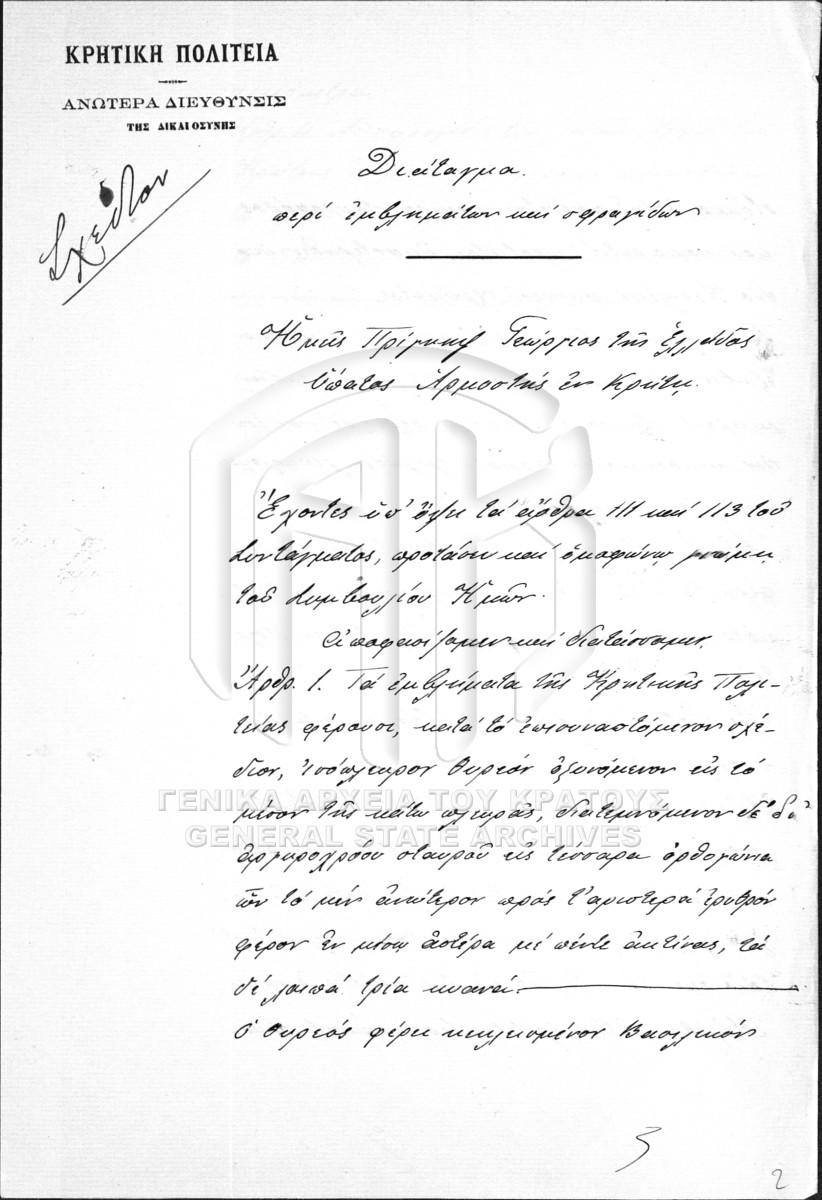 ΚΡΗΤΙΚΗ ΠΟΛΙΤΕΙΑ
ΑΝΩΤΕΡΑ ΔΙΕΥΘΥΝΣΙΣ
ΤΗΣ ΔΙΚΑΙΟΣΥΝΗΣ
Σχέδιον
Διάταγμα.
περὶ ἐμβλημάτων καὶ σφραγίδων
Ἡμεῖς Πρίγκηψ Γεώργιος τῆς Ἑλλάδος
Ὕπατος Ἁρμοστὴς ἐν Κρήτῃ.
Ἔχοντες ὑπ' ὄψει τὰ ἄρθρα 111 καὶ 113 τοῦ
Συντάγματος, προτάσει καὶ ὁμοφώνῳ γνώμῃ
τοῦ Συμβουλίου Ἡμῶν.
Ἀποφασίζομεν καὶ διατάσσομεν.
Ἄρθρ. 1. Τὰ ἐμβλήματα τῆς Κρητικῆς Πολι-
τείας φέρουσι, κατὰ τὸ ἐπισυναπτόμενον σχέ-
διον, ἰσόπλευρον θυρεόν ὀξυνόμενον εἰς τὸ
μέσον τῆς κάτω πλευρᾶς, διατεμνόμενον δὲ δι'
ἀργυροχρόου σταυροῦ εἰς τέσσαρα ὀρθογώνια
ὧν τὸ μὲν ἀνώτερον πρὸς τ' ἀριστερὰ ἐρυθρόν
φέρον ἐν μέσῳ ἀστέρα μὲ πέντε ἀκτίνας, τὰ
δὲ λοιπὰ τρία κυανᾶ.
Ὁ θυρεός φέρει κεκλεισμένον Βασιλικόν
ΓΕΝΙΚΑ ΑΡΧΕΙΑ ΤΟΥ ΚΡΑΤΟΥΣ
GENERAL STATE ARCHIVES
3
2